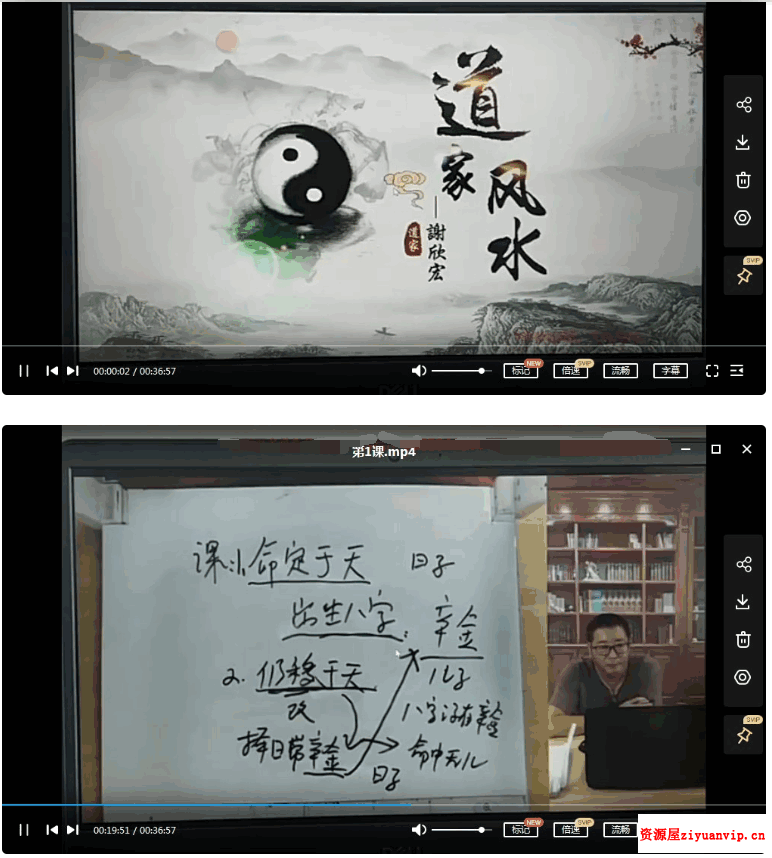 道家风水
——謝欣宏
道家
00:00:02 / 00:36:57
标记
NEW
倍速
SVIP
流畅
字幕
SVIP
第1课.mp4
命定于天
日子
出生八字
辛金
2. 仍移于天
儿子
改
八字没有辛金
择日带辛金
命中无儿
日子
00:19:51 / 00:36:57
标记
NEW
倍速
SVIP
流畅
SVIP
资源屋ziyuanvip.cn